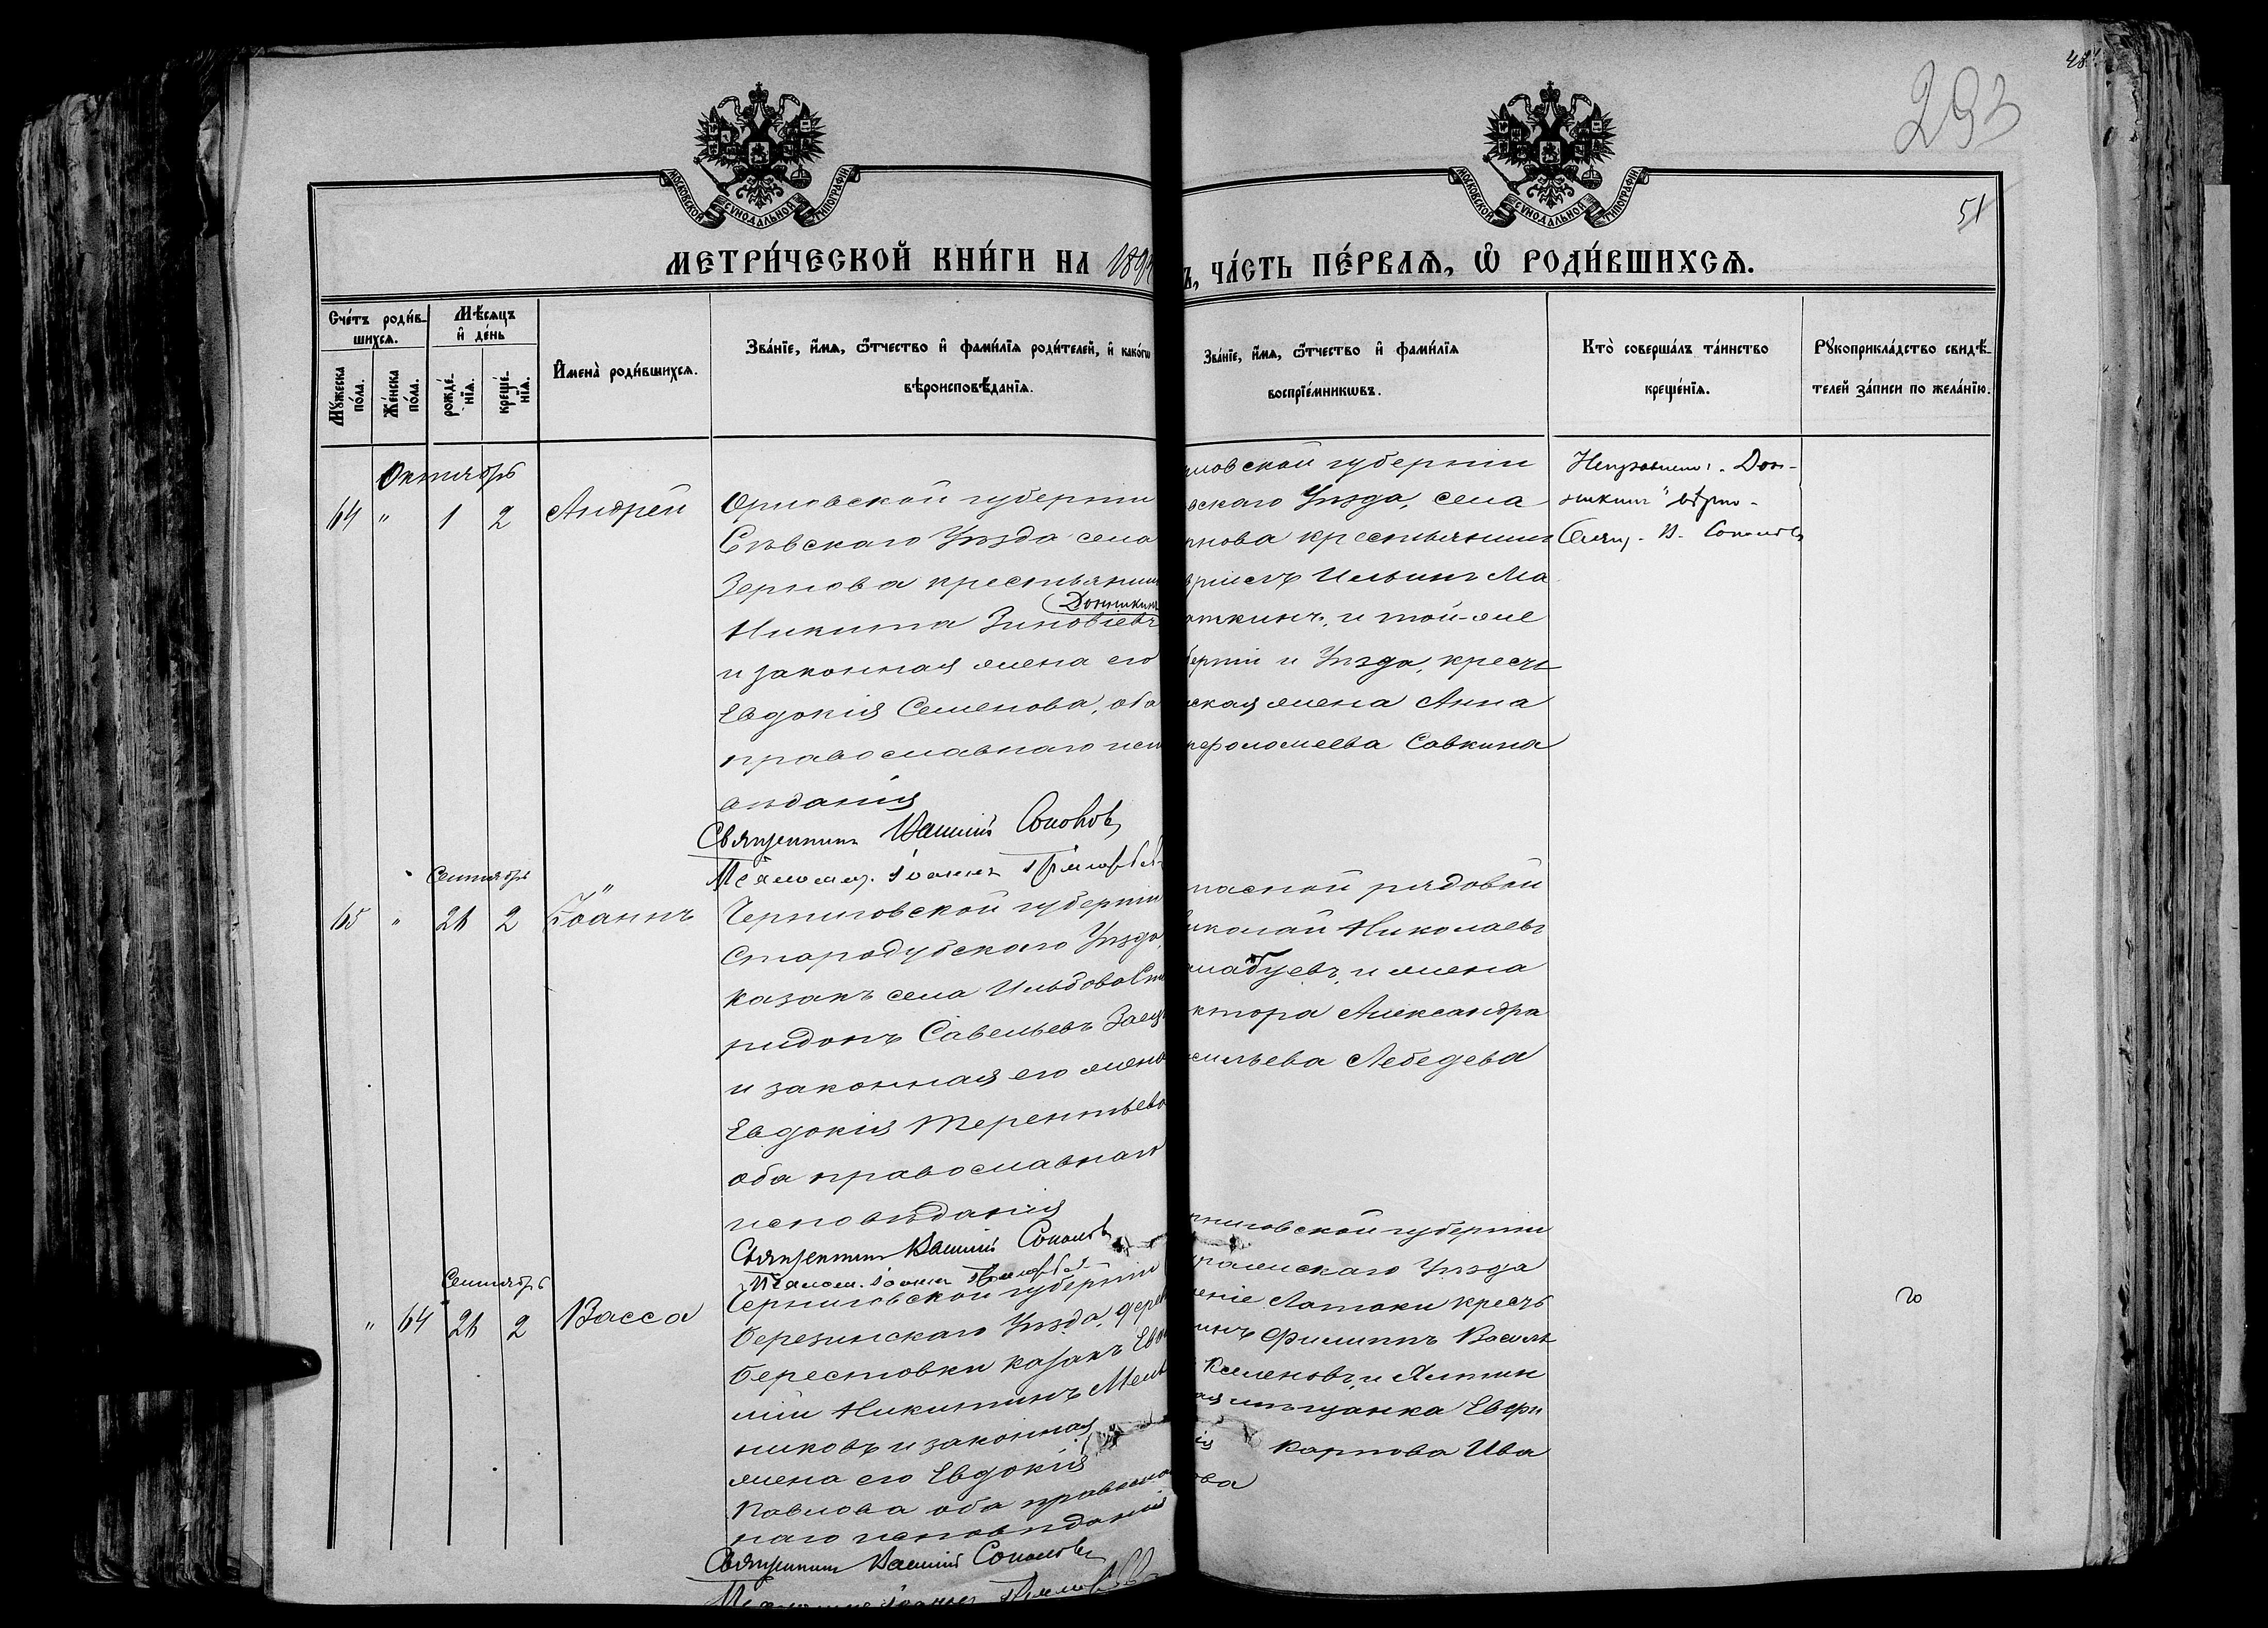 293
51
МОСКОВСКОЙ СѴНОДАЛЬНОЙ ТИПОГРАФІИ
МОСКОВСКОЙ СѴНОДАЛЬНОЙ ТИПОГРАФІИ
МЕТРИ́ЧЕСКОЙ КНИ́ГИ НА 189
Ъ, ЧА́СТЬ ПЕ́РВАѦ, Ѡ҆ РОДИ́ВШИХСѦ.
Сче́тъ роди́в-
шихсѧ.
Мꙋ́жеска по́ла.
Же́нска по́ла.
Мѣ́сѧцъ
и҆ де́нь
рожде́-
нїѧ.
креще́-
нїѧ.
И҆мена̀ роди́вшихсѧ.
Зва́нїе, и҆́мѧ, ѻ҆́тчество и҆ фами́лїѧ роди́телей, и҆ како́гѡ
вѣроисповѣ́данїѧ.
Зва́нїе, и҆́мѧ, ѻ҆́тчество и҆ фами́лїѧ
воспрїе́мникѡвъ.
Кто̀ соверша́лъ та́инство
креще́нїѧ.
Рꙋкоприкла́дство свидѣ́-
телей за́писи по жела́нїю.
Октябрь
64 " 1 2 Андрей
Орловской губерніи
Сѣвскаго Уѣзда села
Зернова крестьянинъ
Донникинъ
Никита Зиновіевъ
и законная жена его
Евдокія Семенова, оба
православнаго испо
вѣданія
Священникъ Василій Соколовъ
Псаломщ. Іоаннъ
ловской губерніи
вскаго Уѣзда, села
рнова крестьянинъ
вріилъ Ильинъ Ма
откинъ, и той-же
берніи и Уѣзда, кресть
ская жена Анна
ѳоломеева Савкина
"Дон-
никинъ" вѣрно
Свящ. В. Соколовъ
Сентябрь
65 " 26 2 Іоаннъ
Черниговской губерніи
Стародубскаго Уѣзда,
казакъ села Ильбова Спи
ридонъ Савельевъ Заец
и законная его жена
Евдокія Терентьева
оба православнаго
исповѣданія
Священникъ Василій Соколовъ
Псалом. Іоаннъ
пасной рядовой
иколай Николаевъ
и жена
ктора Александра
сильева Лебедева
Сентябрь
" 64 26 2 Васса
Черниговской губерніи
Березинскаго Уѣзда, дерев
Берестовки казакъ Евѳи
мій Никитинъ Мель
никовъ и законная
жена его Евдокія
Павлова оба православ
наго исповѣданія
Священникъ Василій Соколовъ
рниговской губерніи
ражскаго Уѣзда
еніе Лотоки кресть
инъ Филиппъ Василь
и Ялтин
ая мѣщанка Евфи
ія Карпова Ива
ова